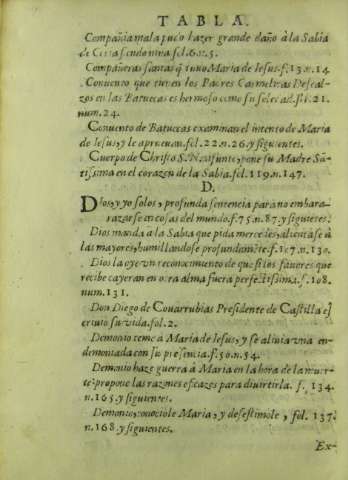 TABLA.
Compañia mala puso hazer grande daño à la Sabia
de Coria siendo niña fol. 6. n. 5.
Compañeras santas q̃ tuuo Maria de Iesus. f. 13. n. 14.
Conuento que tienen los Padres Carmelitas Descal-
zos en las Batuecas es hermoso como su soledad. f. 21.
num. 24.
Conuento de Batuecas examinan el intento de Maria
de Iesus, y le aprueuan. fol. 22. n. 26. y siguientes.
Cuerpo de Christo S. N. difunto, pone su Madre Sã-
tissima en el corazon de la Sabia. fol. 119. n. 147.
D.
Dios, y yo solos, profunda sentencia para no embara-
razarse en cosas del mundo. f. 75. n. 87. y siguiẽtes.
Dios manda à la Sabia que pida mercedes, alientase à
las mayores, humillandose profundamẽte. f. 107. n. 130.
Dios la oye vn reconocimiento de que si los fauores que
recibe cayeran en otra alma fuera perfectissima. f. 108.
num. 131.
Don Diego de Couarrubias Presidente de Castilla es-
criuio su vida. fol. 2.
Demonio teme à Maria de Iesus, y se aliuia vna en-
demoniada con su presencia. f. 50. n. 54.
Demonio haze guerra à Maria en la hora de la muer-
te: propone las razones eficazes para diuirtirla. f. 134.
n. 165. y siguientes.
Demonio, conociole Maria, y desestimole, fol. 137.
n. 168. y siguientes.
Ex-